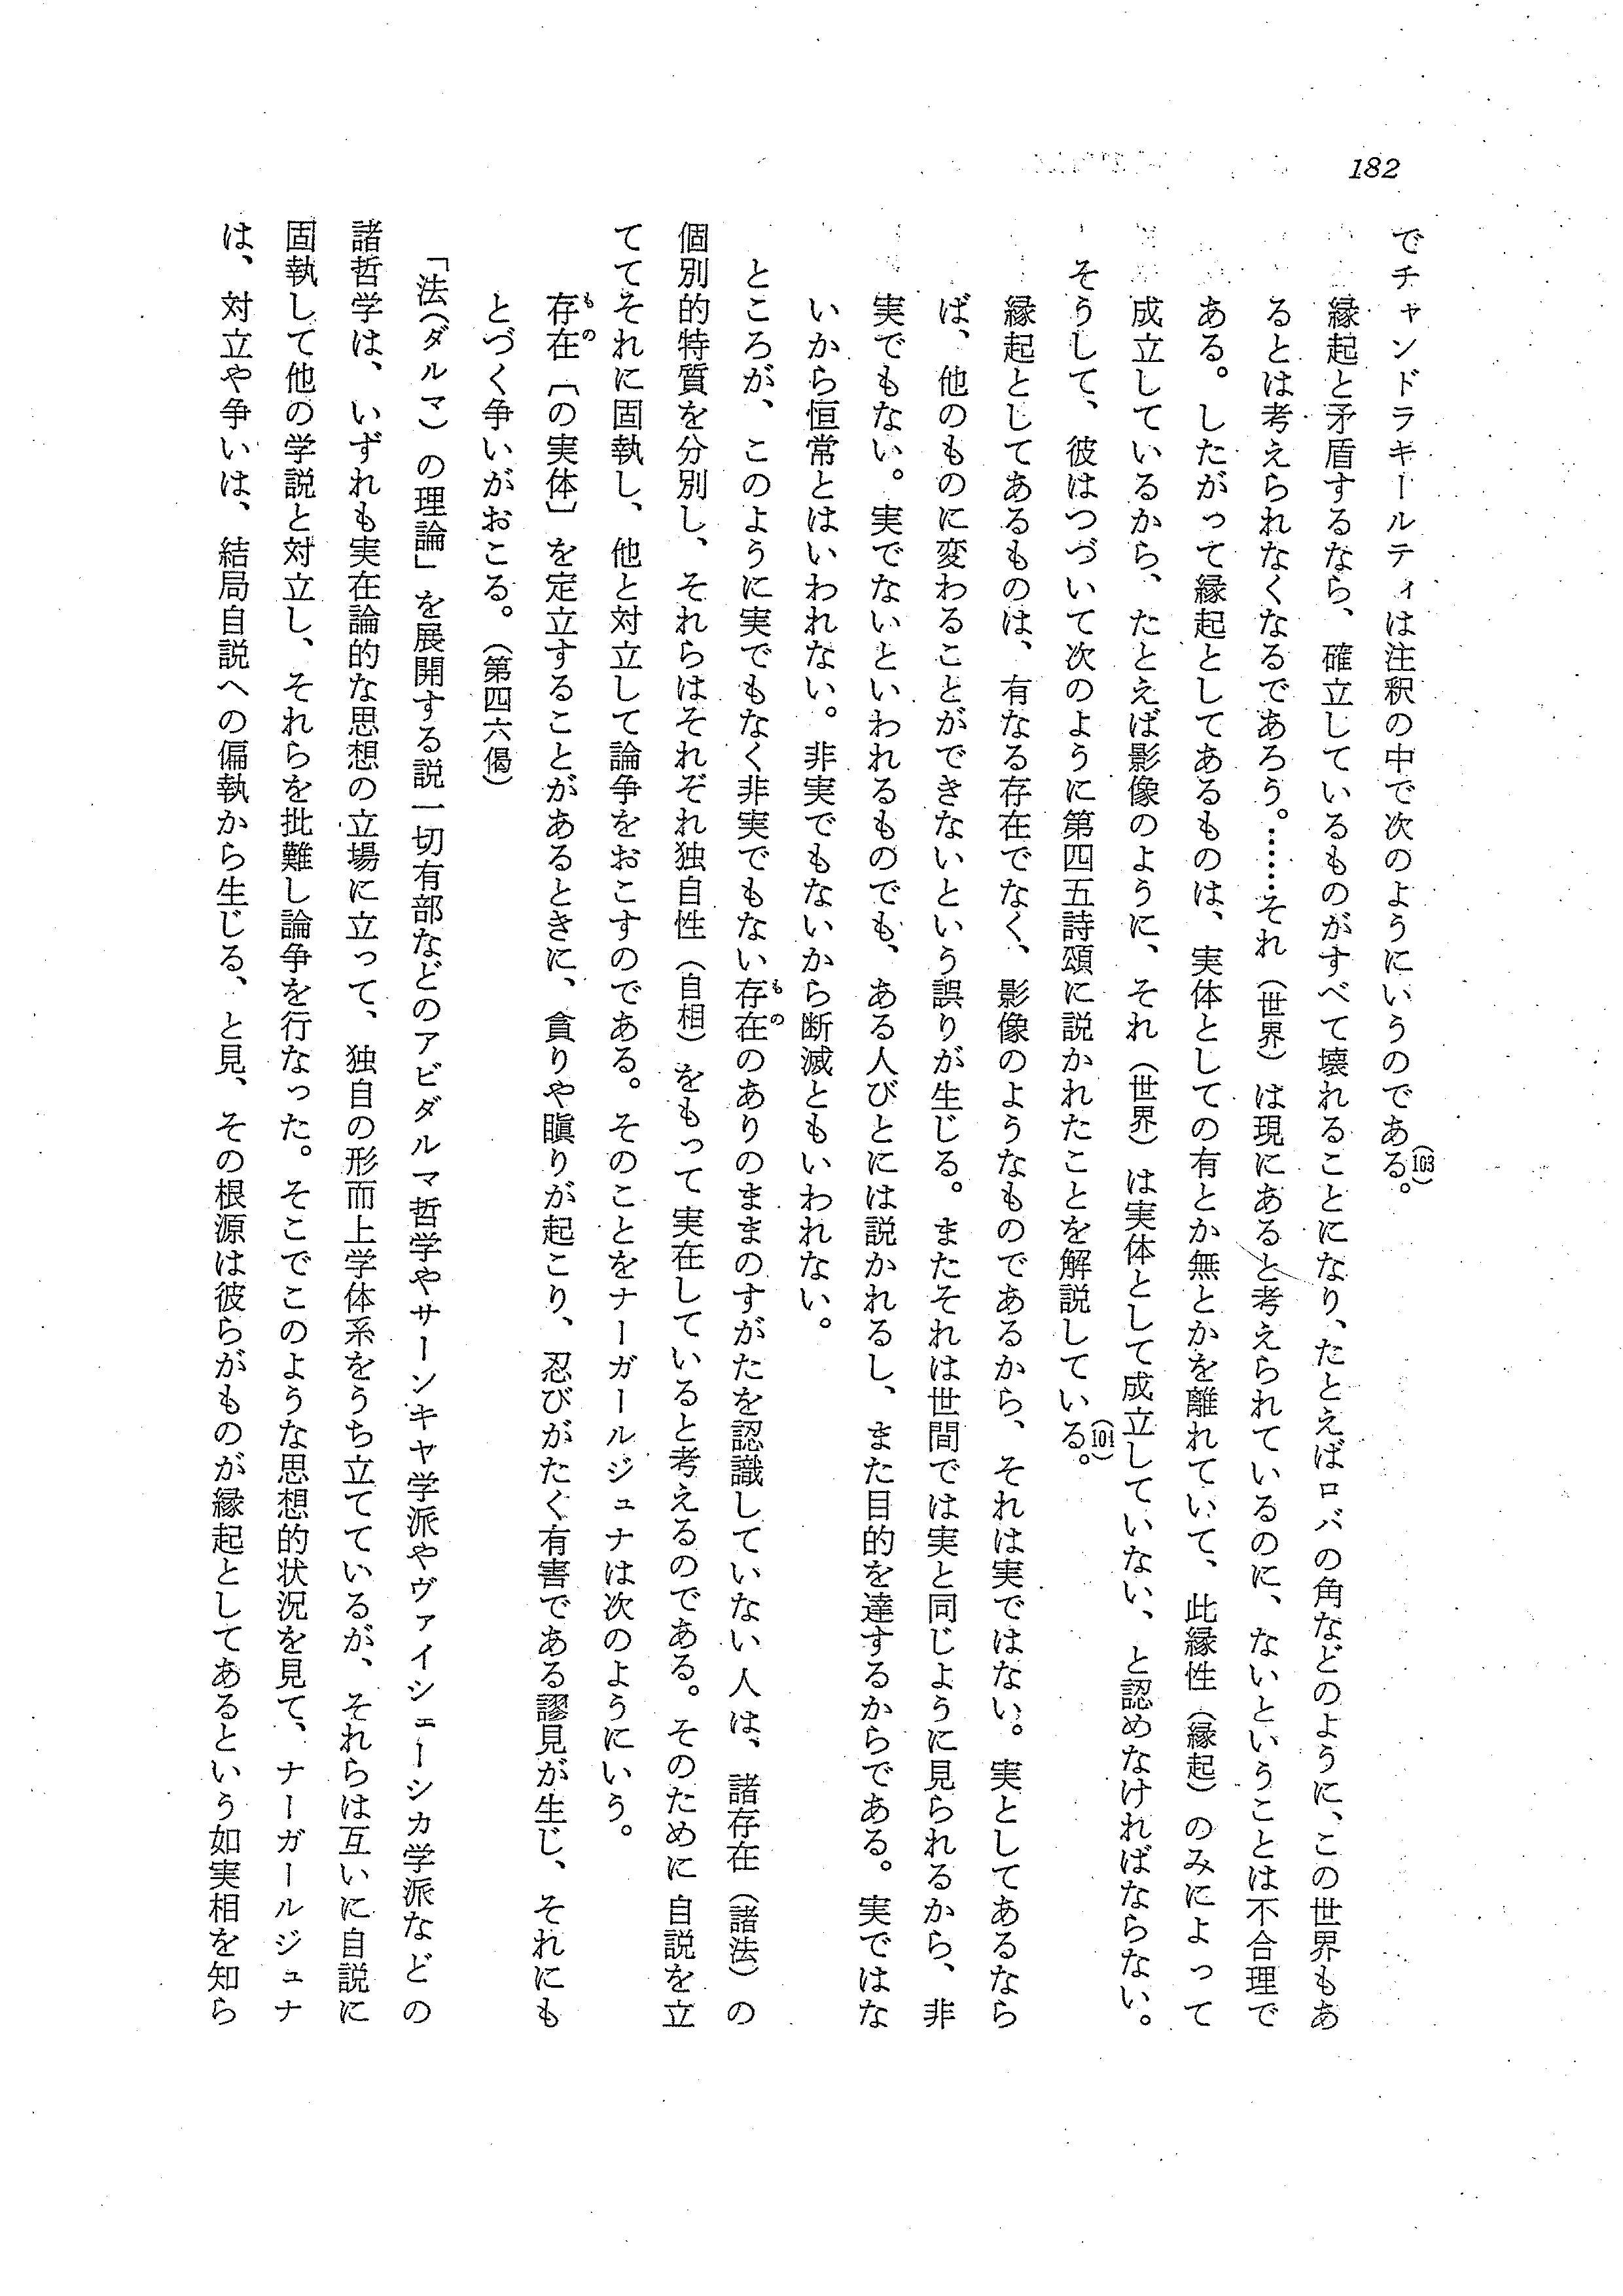 182
でチャンドラキールティは注釈の中で次のようにいうのである。(103)
縁起と矛盾するなら、確立しているものがすべて壊れることになり、たとえばロバの角などのように、この世界もあ
るとは考えられなくなるであろう。……それ（世界）は現にあると考えられているのに、ないということは不合理で
ある。したがって縁起としてあるものは、実体としての有とか無とかを離れていて、此縁性（縁起）のみによって
成立しているから、たとえば影像のように、それ（世界）は実体として成立していない、と認めなければならない。
そうして、彼はつづいて次のように第四五詩頌に説かれたことを解説している。(104)
縁起としてあるものは、有なる存在でなく、影像のようなものであるから、それは実ではない。実としてあるなら
ば、他のものに変わることができないという誤りが生じる。またそれは世間では実と同じように見られるから、非
実でもない。実でないといわれるものでも、ある人びとには説かれるし、また目的を達するからである。実ではな
いから恒常とはいわれない。非実でもないから断滅ともいわれない。
ところが、このように実でもなく非実でもない存在のありのままのすがたを認識していない人は、諸存在（諸法）の
個別的特質を分別し、それらはそれぞれ独自性（自相）をもって実在していると考えるのである。そのために自説を立
ててそれに固執し、他と対立して論争をおこすのである。そのことをナーガールジュナは次のようにいう。
存在〔の実体〕を定立することがあるときに、貪りや瞋りが起こり、忍びがたく有害である謬見が生じ、それにも
とづく争いがおこる。（第四六偈）
「法（ダルマ）の理論」を展開する説一切有部などのアビダルマ哲学やサーンキャ学派やヴァイシェーシカ学派などの
諸哲学は、いずれも実在論的な思想の立場に立って、独自の形而上学体系をうち立てているが、それらは互いに自説に
固執して他の学説と対立し、それらを批難し論争を行なった。そこでこのような思想的状況を見て、ナーガールジュナ
は、対立や争いは、結局自説への偏執から生じる、と見、その根源は彼らがものが縁起としてあるという如実相を知ら